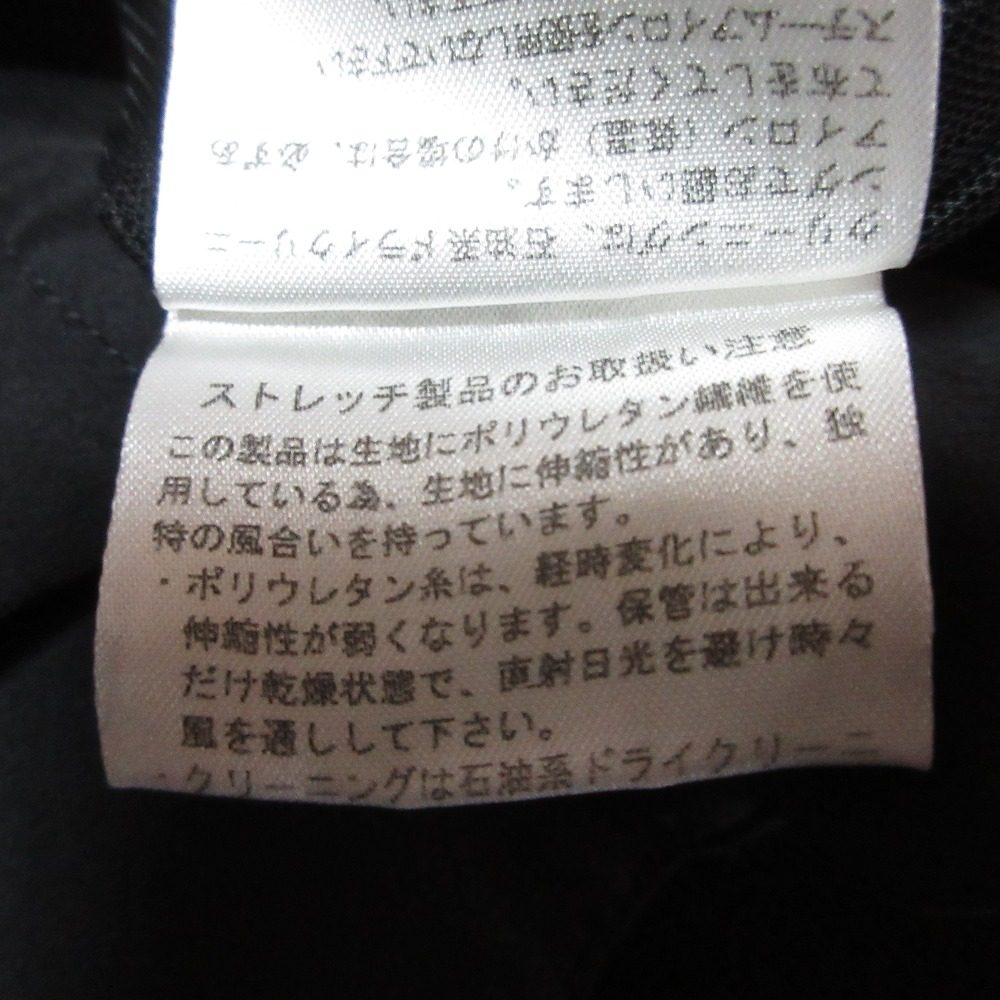 クリーニングは、石油系ドライクリーニ
ングでお願いします。
アイロン（低温）かけの場合は、必ずあ
て布をしてください。
スチームアイロンを使用しないで下さい
ストレッチ製品のお取扱い注意
この製品は生地にポリウレタン繊維を使
用している為、生地に伸縮性があり、独
特の風合いを持っています。
・ポリウレタン糸は、経時変化により、
伸縮性が弱くなります。保管は出来る
だけ乾燥状態で、直射日光を避け時々
風を通しして下さい。
・クリーニングは石油系ドライクリーニ